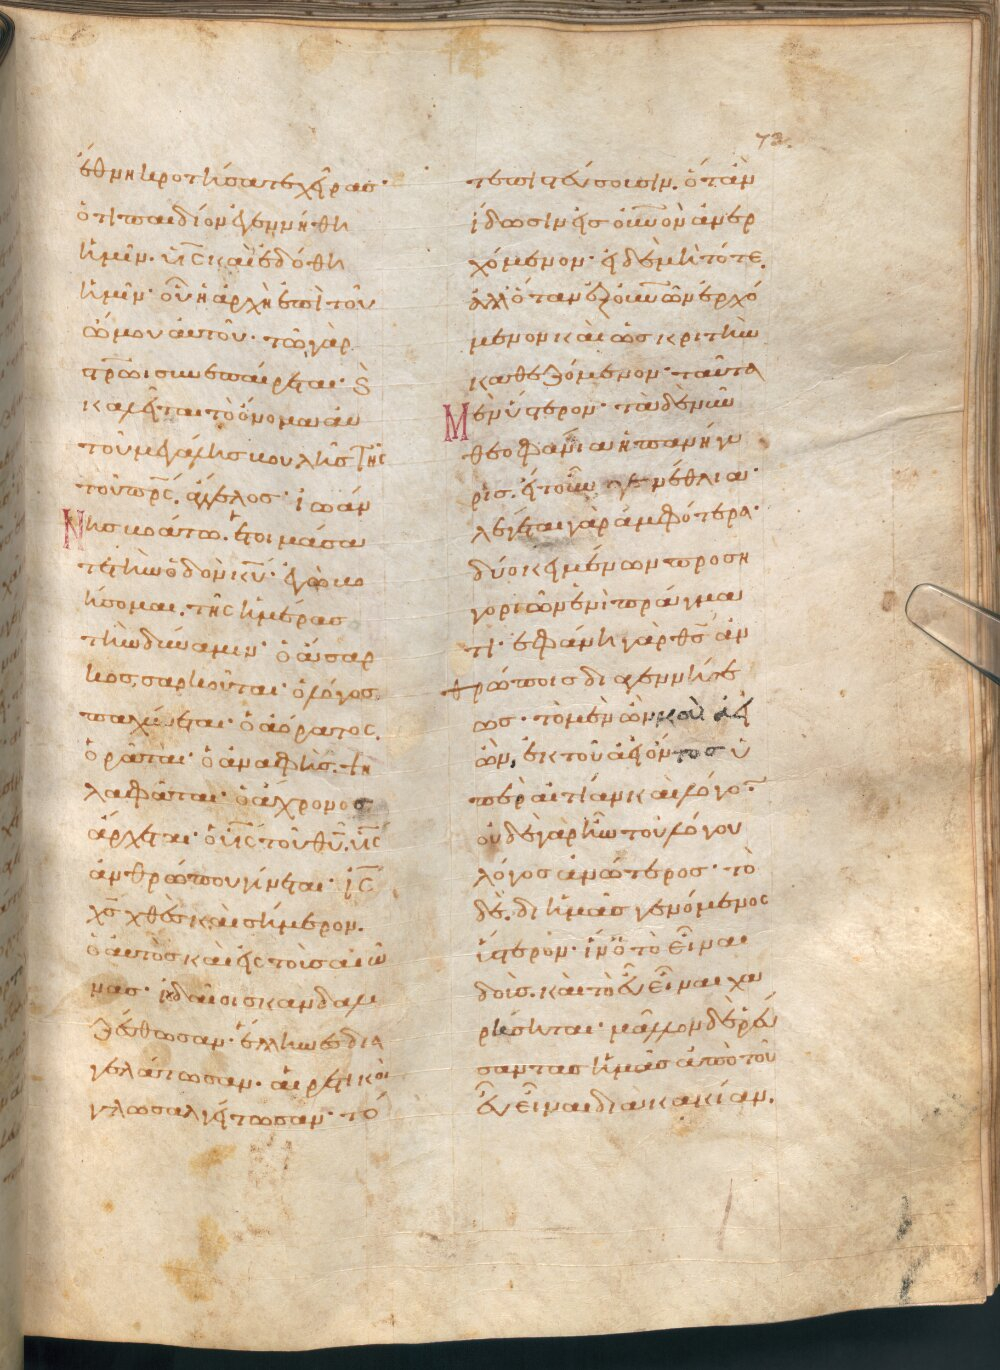 ἔθνη κροτήσατε χεῖρας·
ὅτι παιδίον ἐγεννήθη
ἡμῖν· υἱς καὶ ἐδόθη
ἡμῖν· οὗ ἡ ἀρχὴ ἐπὶ τοῦ
ὤμου αὐτοῦ· τῶ γὰρ
στρωι συνεπαίρεται· ϗ
καλεῖται τὸ ὄνομα αὐ
τοῦ μεγάλης βουλῆς τῆς
τοῦ πρς, ἄγγελος· ἰωάν
νης βοάτω· ἑτοιμάσα
τε τὴν ὁδὸν κυ· κἀγὼ βο
ήσομαι. τῆς ἡμέρας
τὴν δύναμιν· ὁ ἄσαρ
κος, σαρκοῦται· ὁ λόγος.
παχύνεται· ὁ ἀόρατος.
ὁρᾶται· ὁ ἀναφὴς. ψη
λαφᾶται· ὁ ἄχρονος
ἄρχεται· ὁ υις τοῦ θυ, υις
ἀνθρώπου γίνεται· ις
χς χθὲς καὶ σήμερον.
ὁ αὐτὸς καὶ εἰς τοὺς αἰῶ
νας· ἰουδαῖοι σκανδαλι
ζέσθωσαν· ἕλληνες δια
γελάτωσαν· αἱρετικοὶ
γλωσαλγείτωσαν· τό
τε πιστεύσουσιν. ὅταν
ἴδωσιν εἰς ουνον ἀνερ
χόμενον· εἰ δὲ μὴ τότε.
ἀλλ ὅταν ἐξ ουνων ἐρχό
μενον καὶ ὡς κριτὴν
καθεζόμενον· ταῦτα
Μὲν ὕστερον· τὰ δὲ νῦν
θεοφάνια ἡ πανήγυ
ρις. εἴτουν γενέθλια·
λέγεται γὰρ ἀμφότερα·
δύο κειμένων προση
γοριῶν ἑνὶ πράγμα
τι· ἐφάνη γὰρ θς ἀν
θρώποις διὰ γεννήσε
ως· τὸ μὲν ὢν καὶ ἀεὶ
ὢν, ἐκ τοῦ ἀεὶ ὄντος ὑ
πὲρ αἰτίαν καὶ λόγον·
οὐδὲ γὰρ ἦν τοῦ λόγου
λόγος ἀνώτερος· τὸ
δὲ. δι ἡμᾶς γενόμενος
ὕστερον· ἵν ὁ τὸ εἶναι
δοὺς. καὶ τὸ εὖ εἶναι χα
ρίσηται· μᾶλλον δὲ ῥεύ
σαντας ἡμᾶς ἀπὸ τοῦ
εὖ εἶναι διὰ κακίαν.